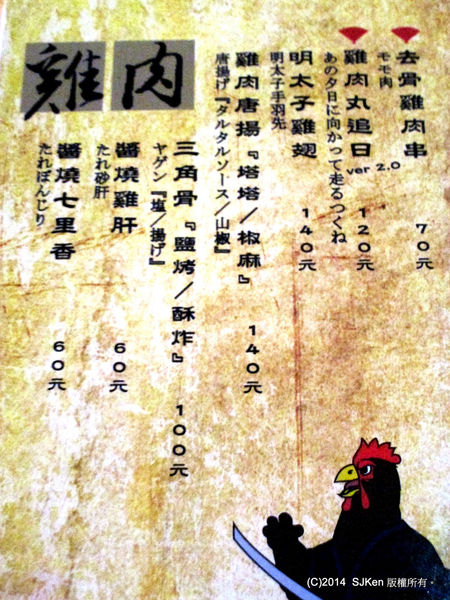 雞肉
去骨雞肉串 70元
モモ肉
雞肉丸追日 ver 2.0 120元
あの夕日に向かって走るつくね
明太子雞翅 140元
明太子手羽先
雞肉唐揚『塔塔／椒麻』 140元
唐揚げ『タルタルソース／山椒』
三角骨『鹽烤／酥炸』 100元
ヤゲン『塩／揚げ』
醬燒雞肝 60元
たれ砂肝
醬燒七里香 60元
たれぼんじり
(C)2014 SJKen 版權所有。